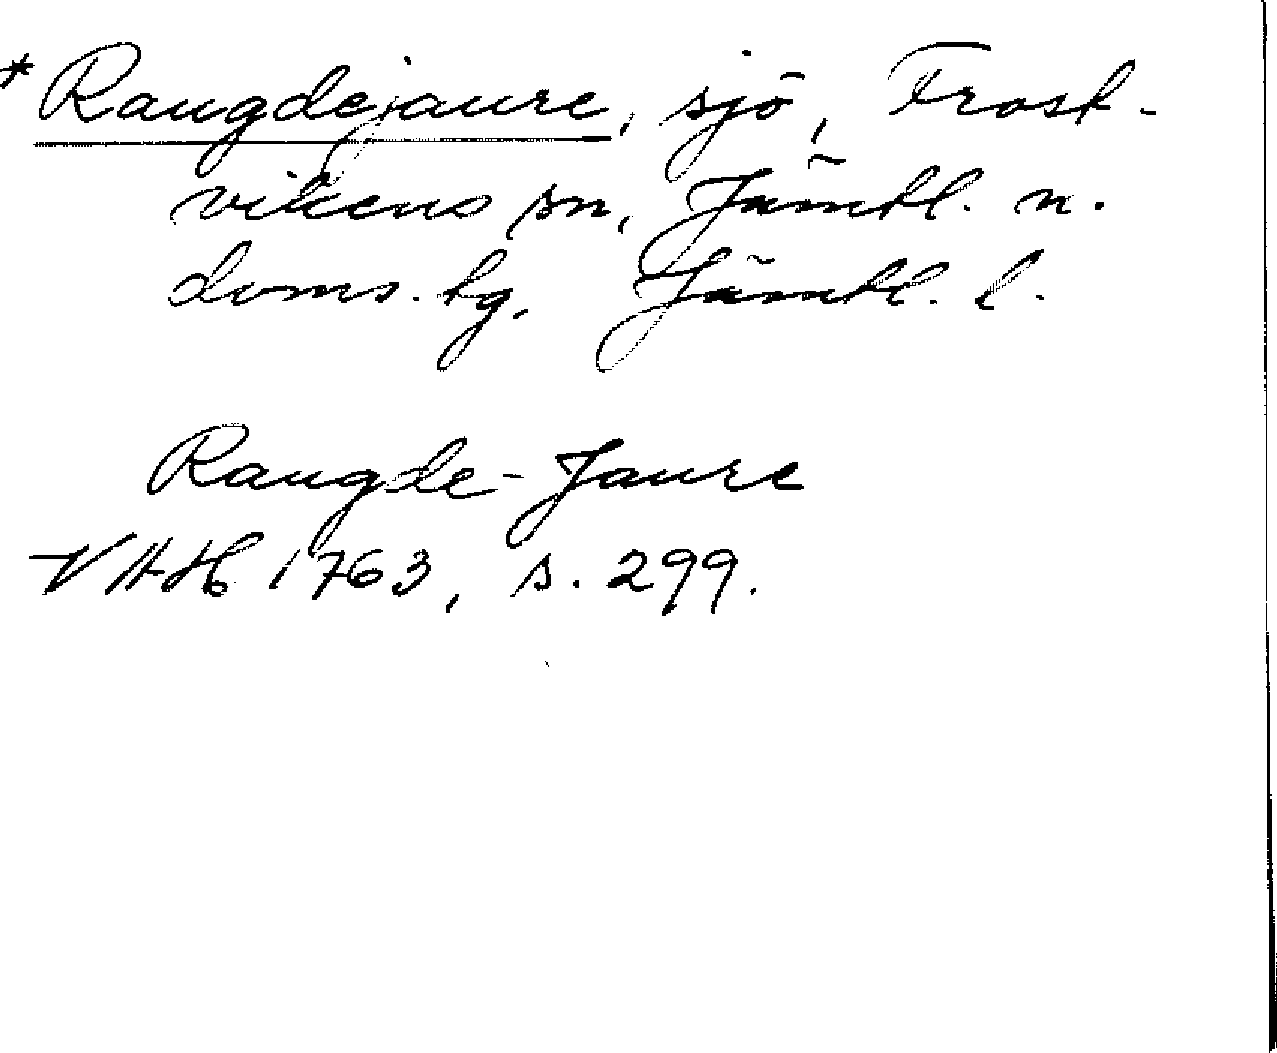 * Raugdejaure, sjö, Frost-
vikens sn, Jämtl. n.
doms. hg, Jämtl. l.
Raugde-Jaure
VAH 1763, s. 299.